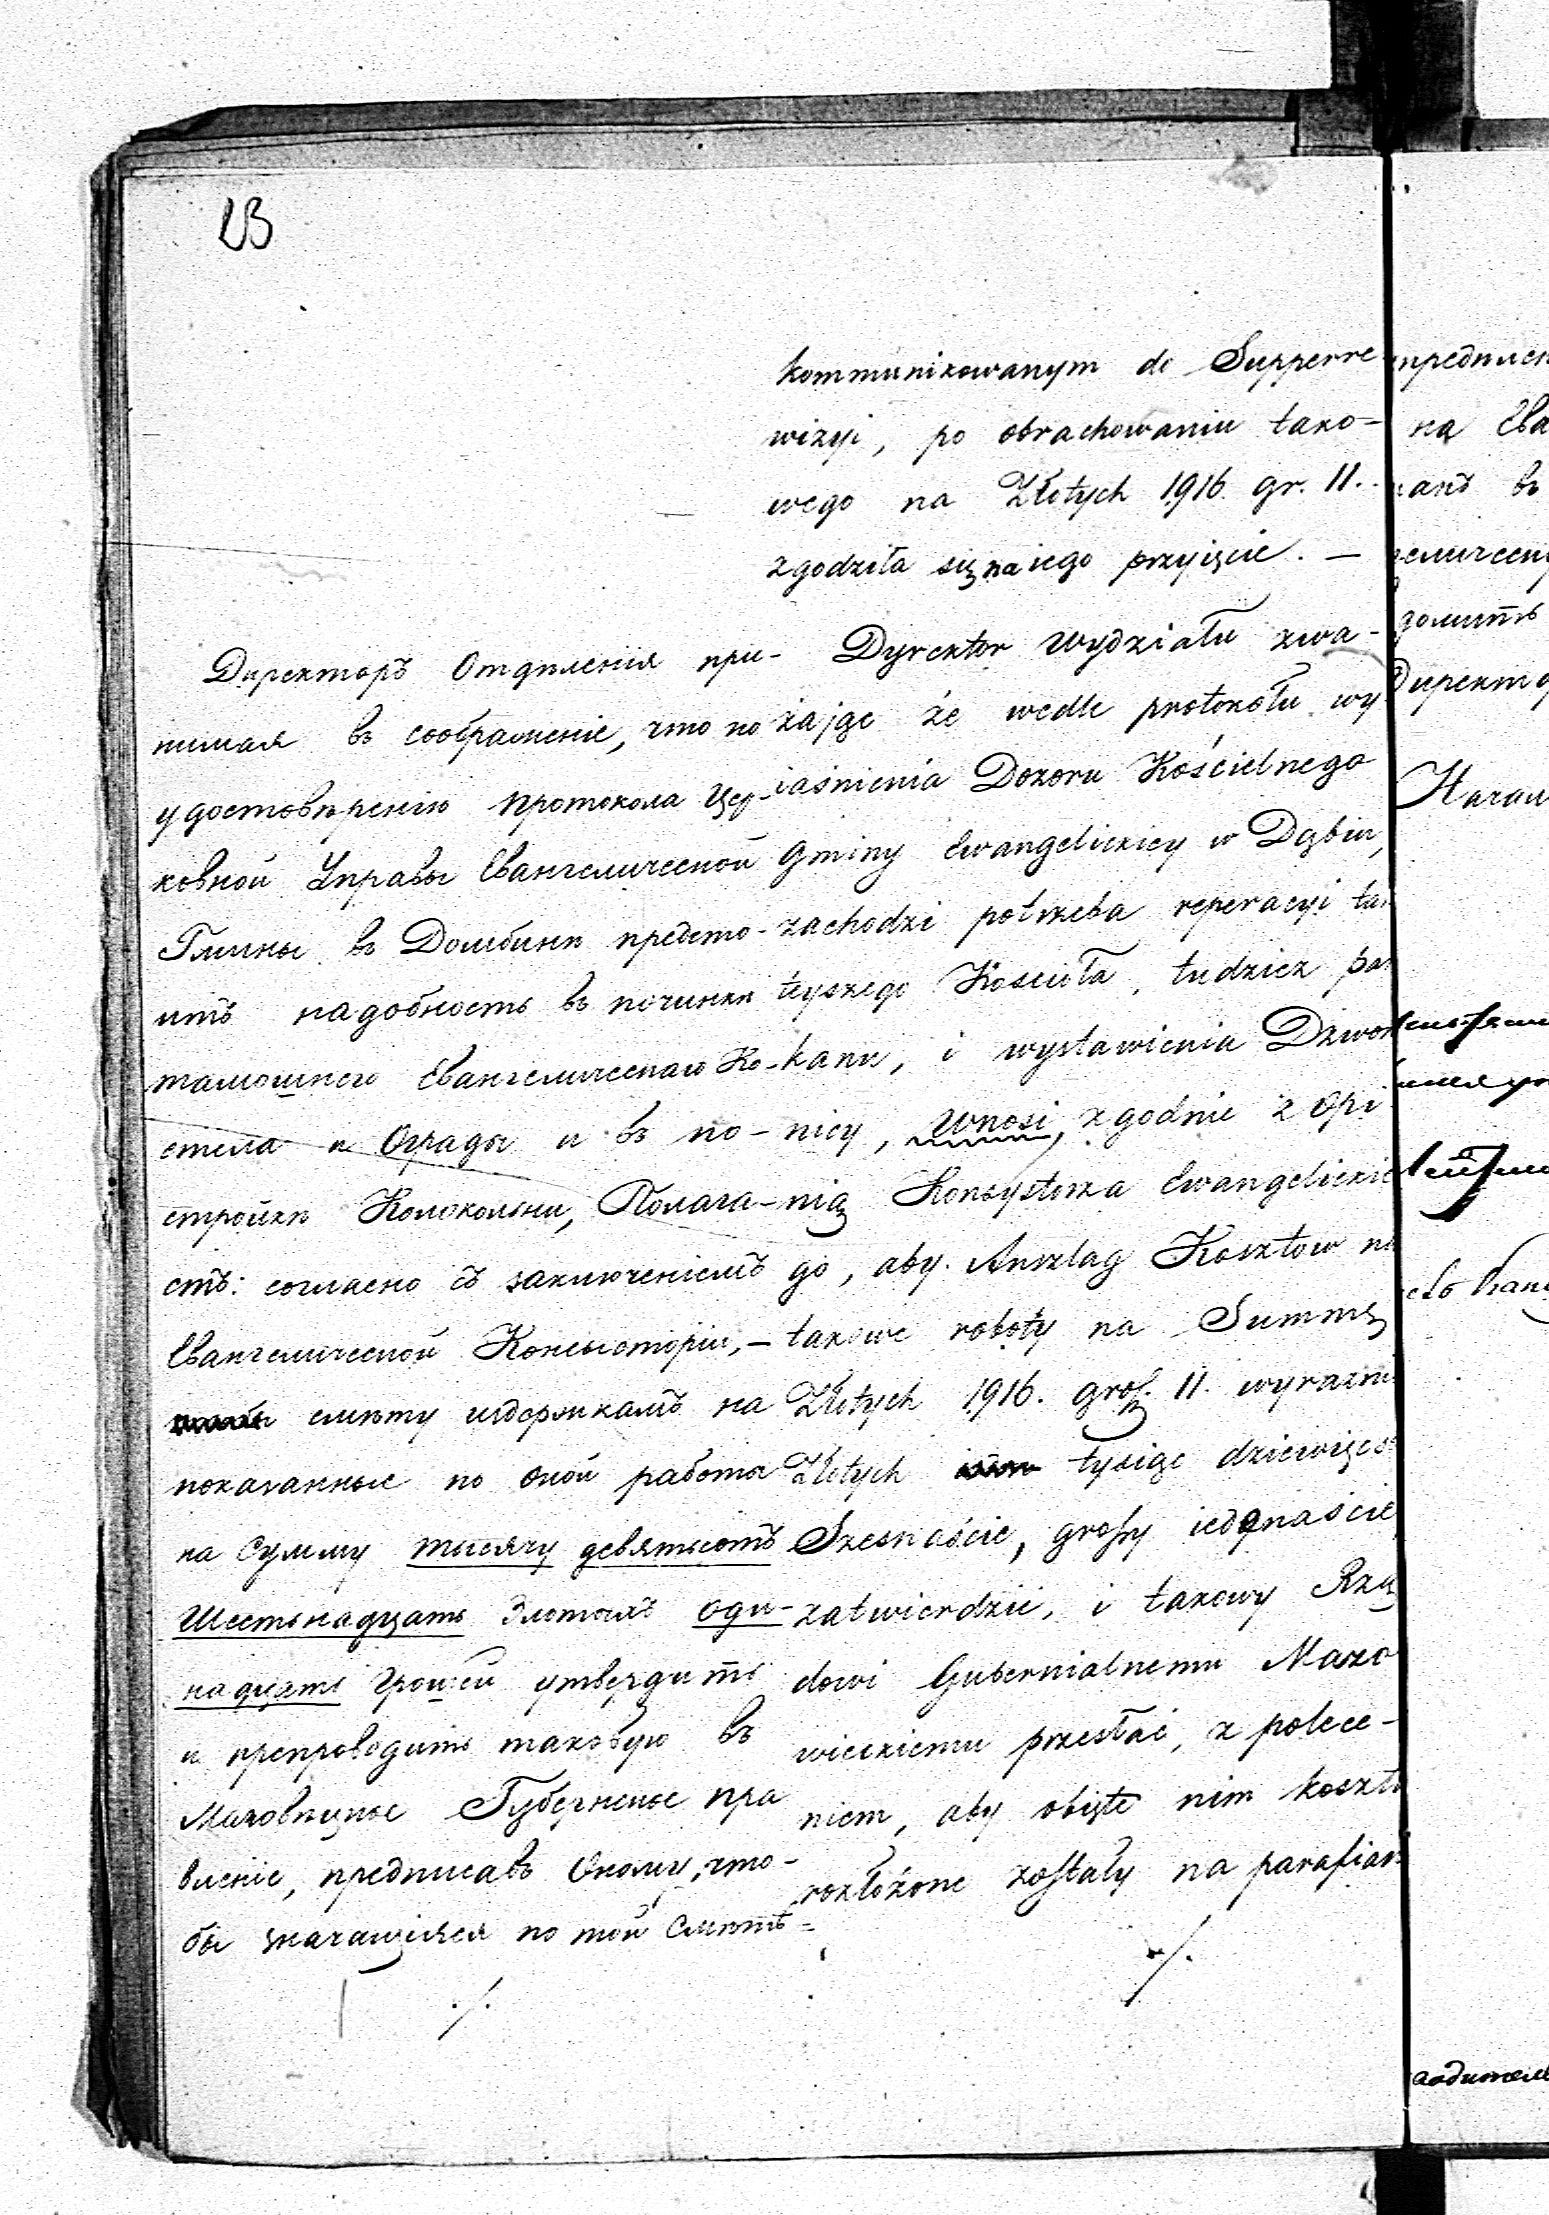 23
kommunikowanym do Superre
wizyi, po obrachowaniu tako-
wego na Złotych 1916 gr. 11.
zgodziła się na iego przyięcie. —
Директоръ Отдѣленія при-
нимая въ соображеніе, что по
удостовѣренію протокола Цер-
ковной Управы Евангелической
Гмины въ Домбинѣ предсто-
итъ надобность въ починкѣ
тамошнего Евангелическаго Ко-
стела и Ограды и въ по-
стройкѣ Колокольни, Полага-
етъ: согласно съ заключеніемъ
Евангелической Консисторіи, —
смѣту издержкамъ на
показанные по оной работы
на Сумму тысячу девятьсотъ
Шестьнадцать Злотыхъ оди-
надцать Грошей утвердить
и препроводить таковую въ
Мазовецкое Губернское Пра
вленіе, предписавъ Оному, что-
бы значащіяся по той Смѣтѣ
./.
Dyrektor Wydziału zwa-
żając że wedle protokołu wy
iaśnienia Dozoru Kościelnego
Gminy Ewangelickiey w Dąbiu,
zachodzi potrzeba reperacyi tam
teyszego Kościoła, tudzież par
kanu, i wystawienia Dzwon
nicy, wnosi, zgodnie z opi
nią Konsystorza Ewangelickie
go, aby Anszlag Kosztow na
takowe roboty na Summę
Złotych 1916. gros. 11. wyraźni
Złotych tysiąc dziewięćs
Szesnaście, groszy iedenaście
zatwierdzić, i takowy Rzą
dowi Gubernialnemu Mazo
wieckiemu przesłać, z polece-
niem, aby obięte nim koszta
rozłożone zostały na parafian
./.
на Ева
антъ въ
Директор
Начал